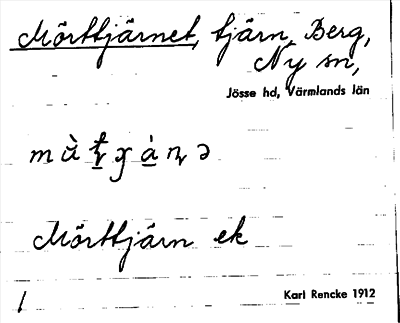 Mörttjärnet, tjärn, Berg,
Ny sn,
Jösse hd, Värmlands län
Mörttjärn ek
1
Karl Rencke 1912